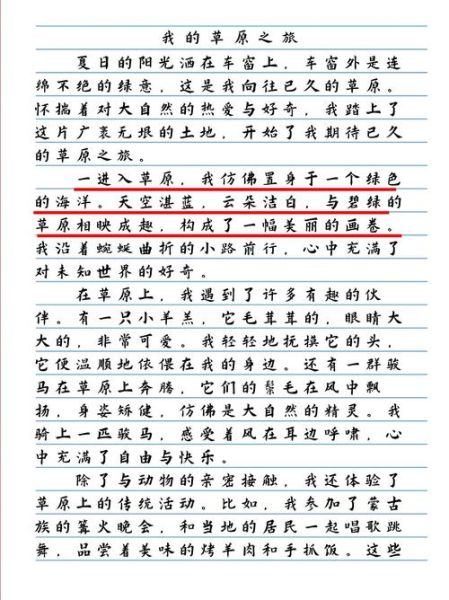 我的草原之旅
夏日的阳光洒在车窗上，车窗外是连
绵不绝的绿意，这是我向往已久的草原。
怀揣着对大自然的热爱与好奇，我踏上了
这片广袤无垠的土地，开始了我期待已久
的草原之旅。
一进入草原，我仿佛置身于一个绿色
的海洋。天空湛蓝，云朵洁白，与碧绿的
草原相映成趣，构成了一幅美丽的画卷。
我沿着蜿蜒曲折的小路前行，心中充满了
对未知世界的好奇。
在草原上，我遇到了许多有趣的伙
伴。有一只小羊羔，它毛茸茸的，眼睛大
大的，非常可爱。我轻轻地抚摸它的头，
它便温顺地依偎在我的身边。还有一群骏
马在草原上奔腾，它们的鬃毛在风中飘
扬，身姿矫健，仿佛是大自然的精灵。我
骑上一匹骏马，感受着风在耳边呼啸，心
中充满了自由与快乐。
除了与动物的亲密接触，我还体验了
草原上的传统活动。比如，我参加了蒙古
族的篝火晚会，和当地的居民一起唱歌跳
舞，品尝着美味的烤羊肉和手抓饭。这些